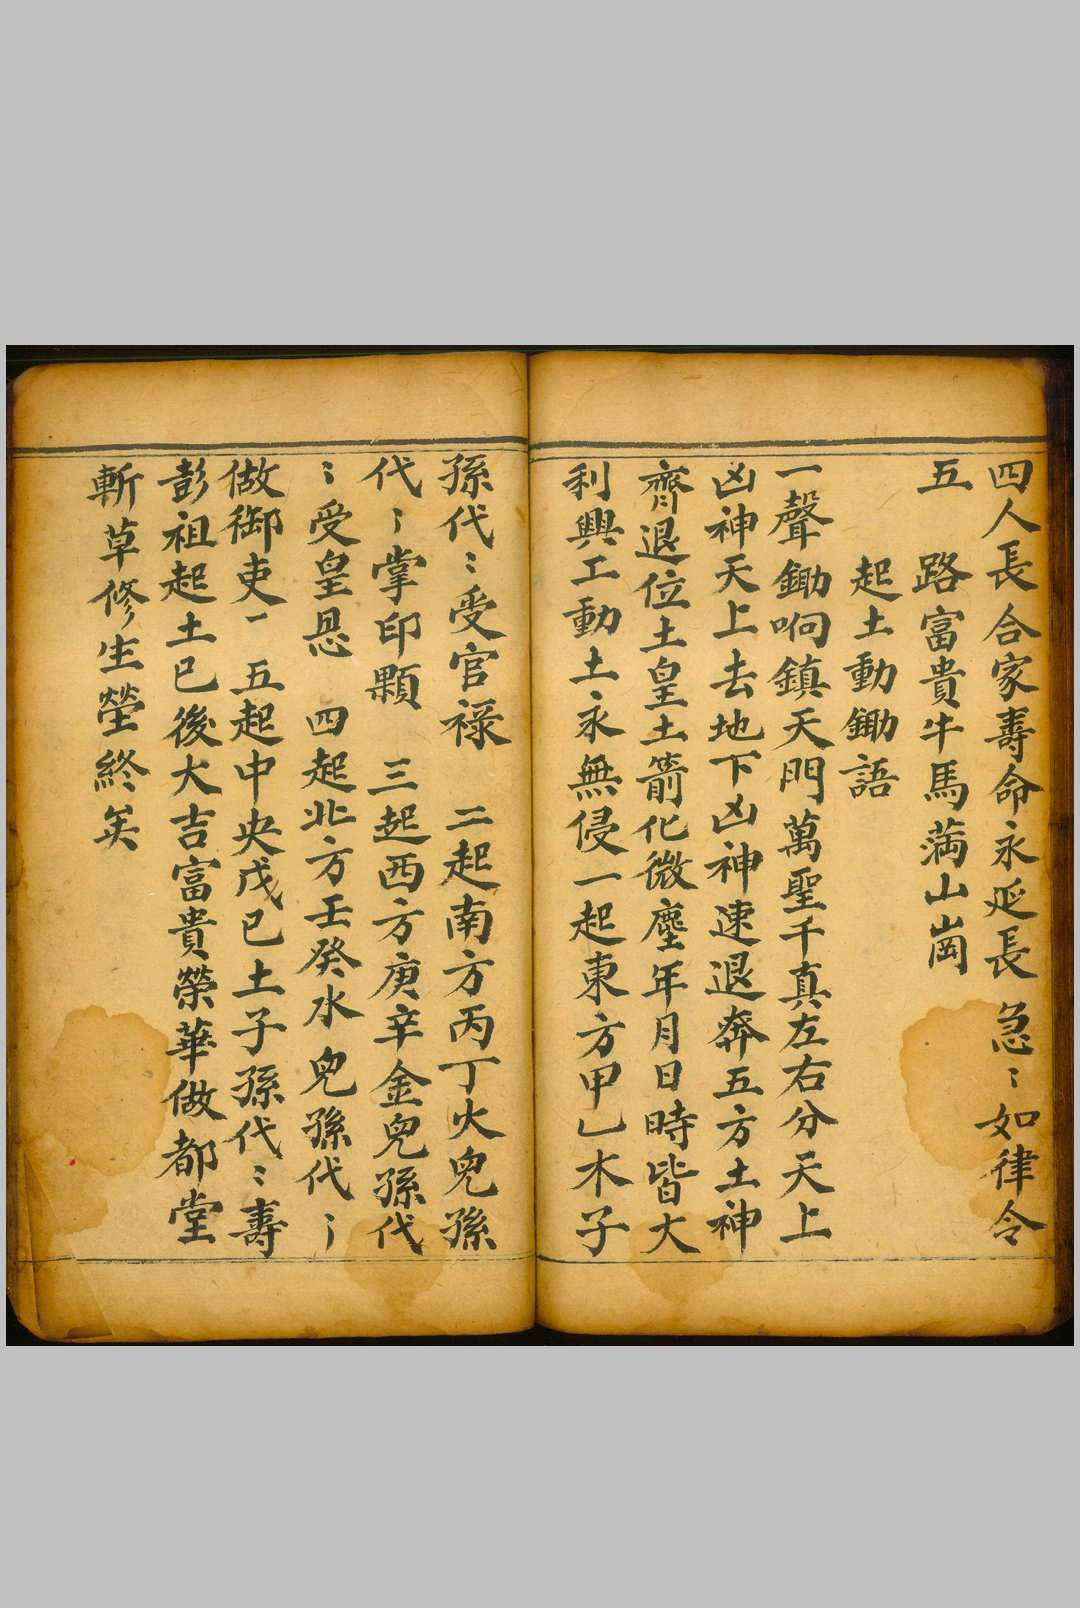 四人長合家壽命永延長　急〻如律令
五　路富貴牛馬滿山崗
起土動鋤語
一聲鋤响鎮天門萬聖千真左右分天上
凶神天上去地下凶神速退奔五方土神
齊退位土皇土箭化微塵年月日時皆大
利興工動土永無侵一起東方甲乙木子
孫代〻受官祿　二起南方丙丁火兒孫
代〻掌印顆　三起西方庚辛金兒孫代
〻受皇恩　四起北方壬癸水兒孫代〻
做御吏　五起中央戊己土子孫代〻壽
彭祖起土已後大吉富貴榮華做都堂
斬草修生塋終矣